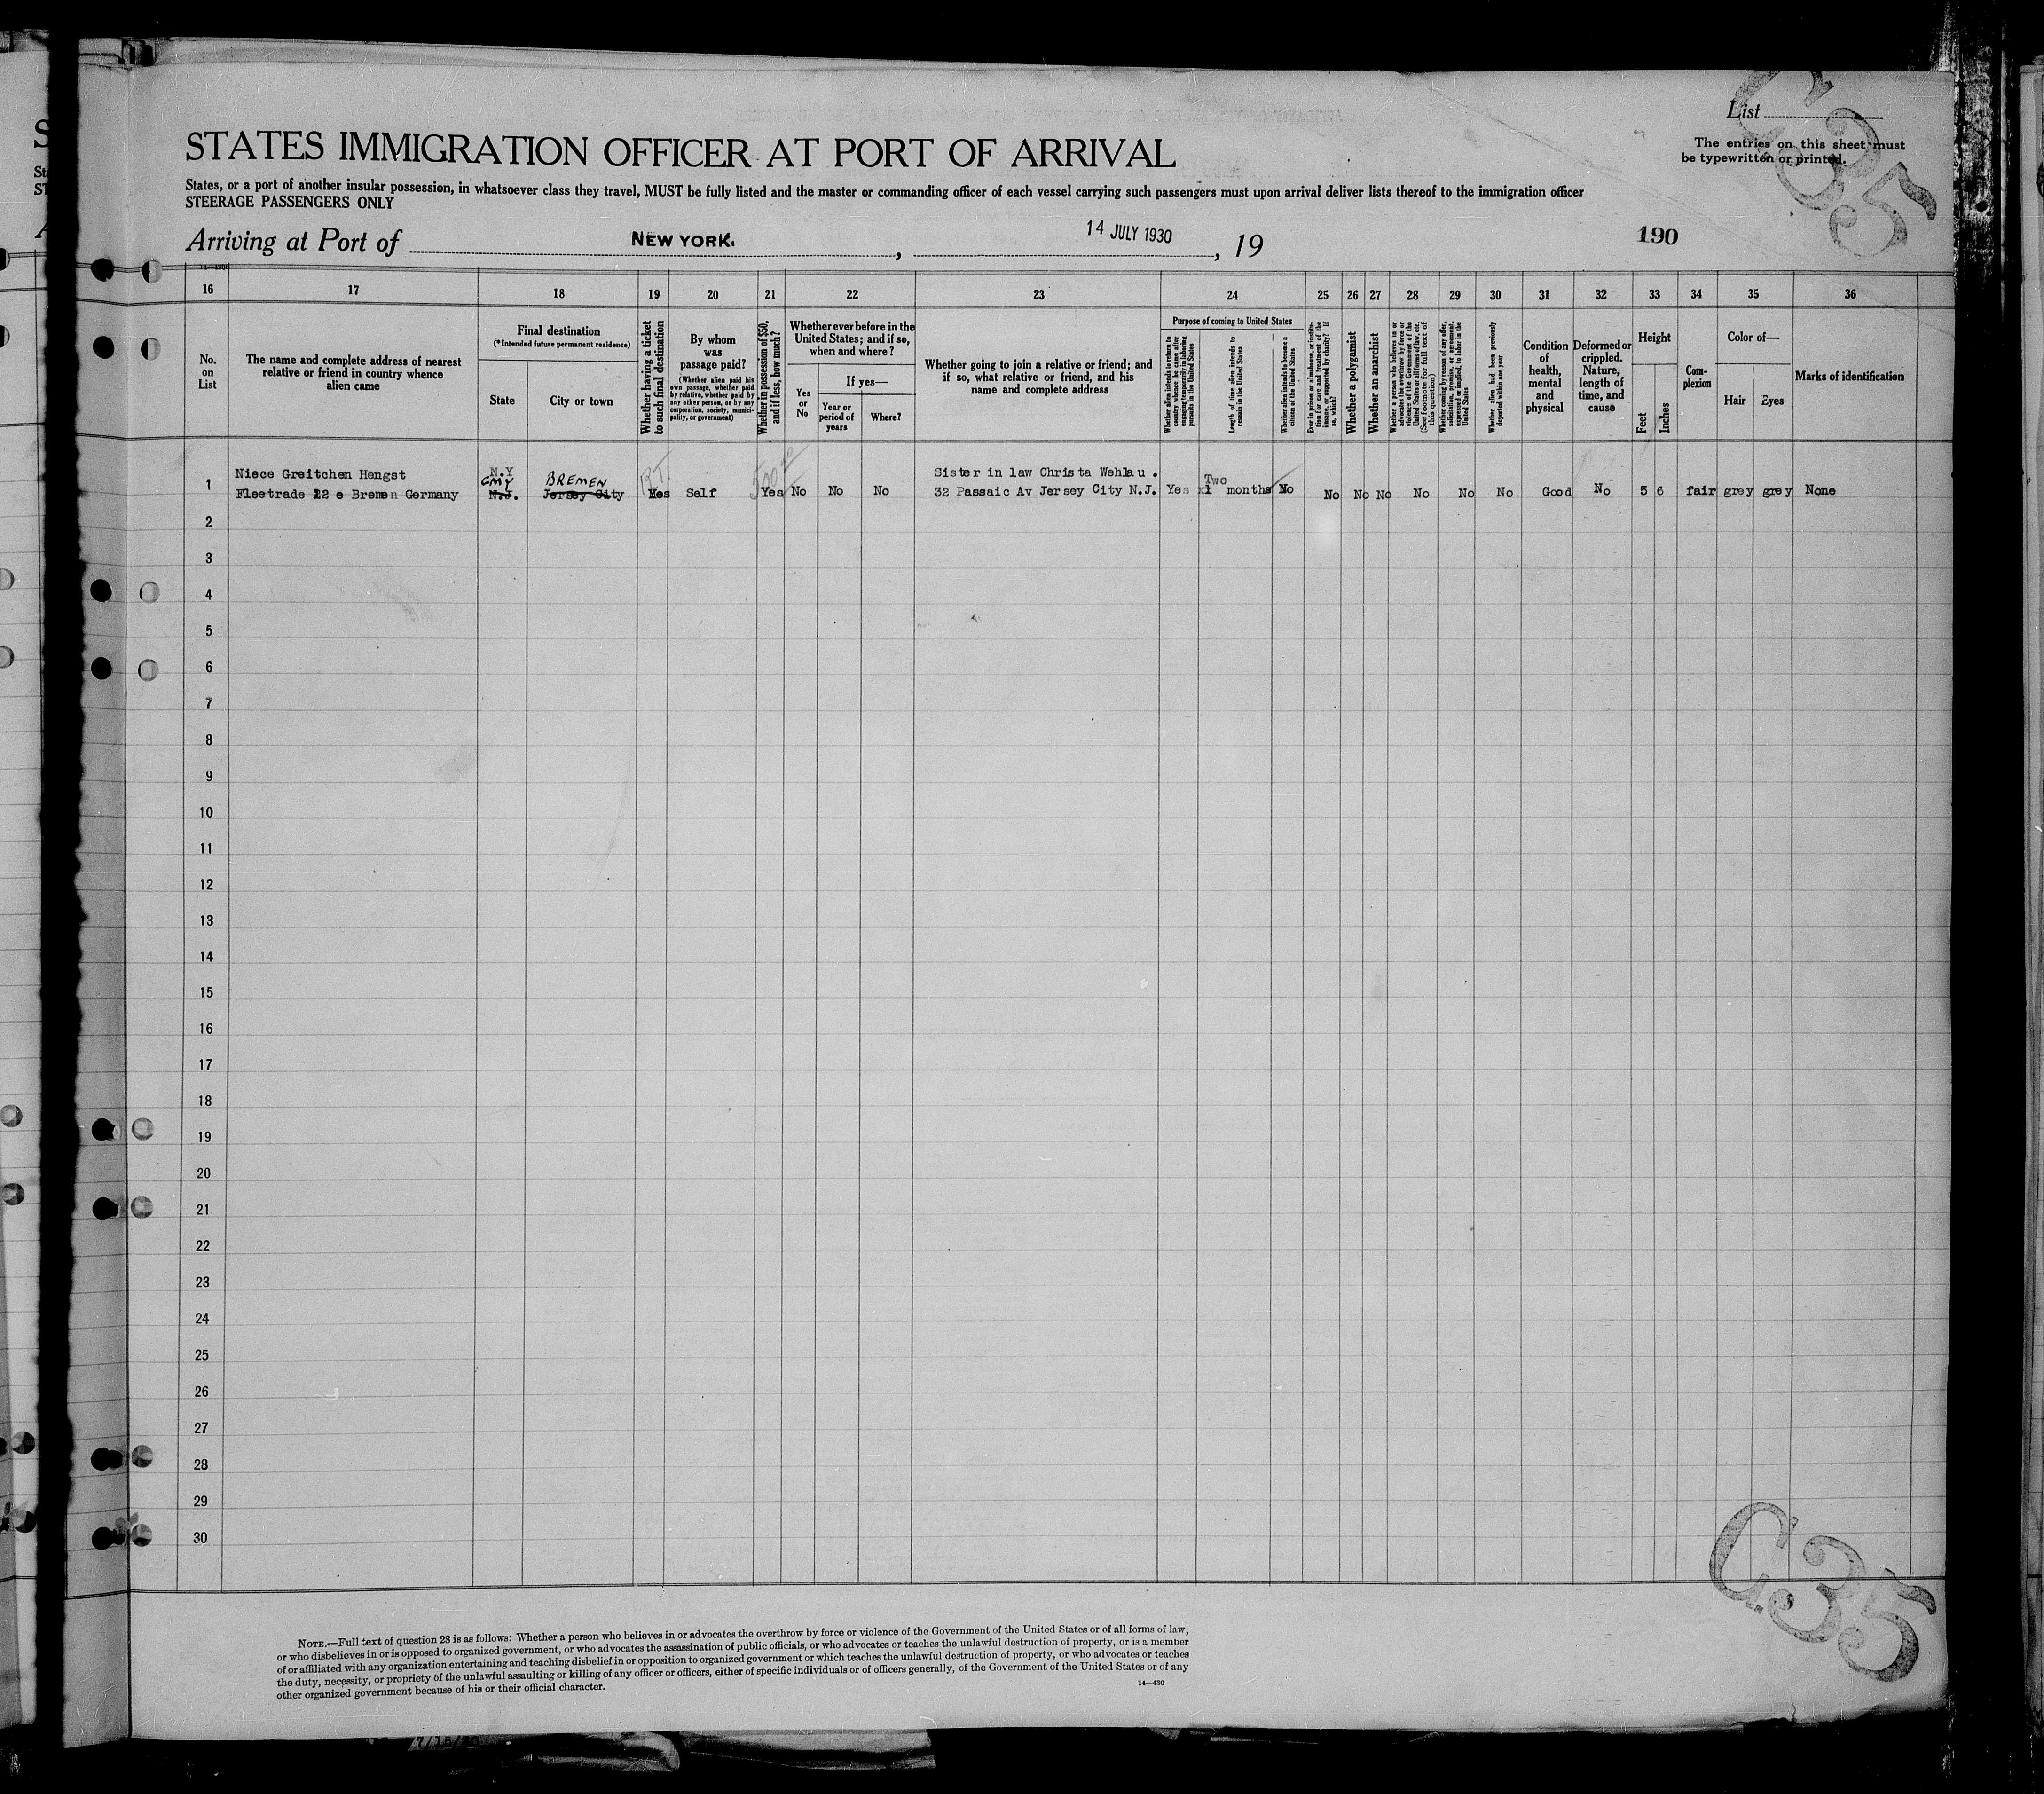 List
C35
The entries on this sheet must
be typewritten or printed.
STATES IMMIGRATION OFFICER AT PORT OF ARRIVAL
States, or a port of another insular possession, in whatsoever class they travel, MUST be fully listed and the master or commanding officer of each vessel carrying such passengers must upon arrival deliver lists thereof to the immigration officer
STEERAGE PASSENGERS ONLY
Arriving at Port of NEW YORK. , 14 JULY 1930 , 19 190
14—430
16 17 18 19 20 21 22 23 24 25 26 27 28 29 30 31 32 33 34 35 36
No.
on
List
The name and complete address of nearest
relative or friend in country whence
alien came
Final destination
(*Intended future permanent residence)
State
City or town
Whether having a ticket
to such final destination
By whom
was
passage paid?
(Whether alien paid his
own passage, whether paid
by relative, whether paid by
any other person, or by any
corporation, society, munici-
pality, or government)
Whether in possession of $50,
and if less, how much?
Whether ever before in the
United States; and if so,
when and where?
Yes
or
No
If yes—
Year or
period of
years
Where?
Whether going to join a relative or friend; and
if so, what relative or friend, and his
name and complete address
Purpose of coming to United States
Whether alien intends to return to
country whence he came after
engaging temporarily in laboring
pursuits in the United States
Length of time alien intends to
remain in the United States
Whether alien intends to become a
citizen of the United States
Ever in prison or almshouse, or institu-
tion for care and treatment of the
insane, or supported by charity? If
so, which?
Whether a polygamist
Whether an anarchist
Whether a person who believes in or
advocates the overthrow by force or
violence of the Government of the
United States or all forms of law, etc.
(See footnote for full text of
this question)
Whether coming by reason of any offer,
solicitation, promise, or agreement,
expressed or implied, to labor in the
United States
Whether alien had been previously
deported within one year
Condition
of
health,
mental
and
physical
Deformed or
crippled.
Nature,
length of
time, and
cause
Height
Feet
Inches
Com-
plexion
Color of—
Hair
Eyes
Marks of identification
Niece Greitchen Hengst N.Y Sister in law Christa Wehlau .
GMY BREMEN RT 500 Two
1 Fleetrade 22 e Bremen Germany N.J. Jersey City Yes Self Yes No No No 32 Passaic Av Jersey City N.J. Yes x1 months No No No No No No No Good No 5 6 fair grey grey None
2
3
4
5
6
7
8
9
10
11
12
13
14
15
16
17
18
19
20
21
22
23
24
25
26
27
28
29
30
C35
NOTE.—Full text of question 28 is as follows: Whether a person who believes in or advocates the overthrow by force or violence of the Government of the United States or of all forms of law,
or who disbelieves in or is opposed to organized government, or who advocates the assassination of public officials, or who advocates or teaches the unlawful destruction of property, or is a member
of or affiliated with any organization entertaining and teaching disbelief in or opposition to organized government or which teaches the unlawful destruction of property, or who advocates or teaches
the duty, necessity, or propriety of the unlawful assaulting or killing of any officer or officers, either of specific individuals or of officers generally, of the Government of the United States or of any
other organized government because of his or their official character.
14—430